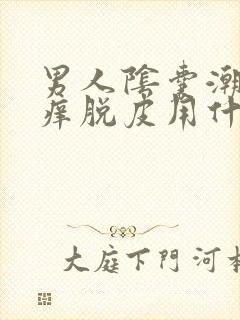 男人陰囊潮
痒脱皮用什
大庭下門河